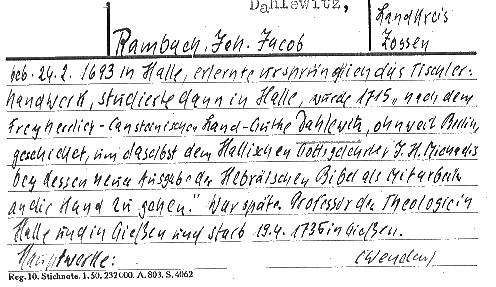 Dahlewitz,
Landkreis
Zossen
Rambach, Joh. Jacob
geb. 24.2. 1693 in Halle, erlernte ursprünglich das Tischler-
handwerk, studierte dann in Halle, wurde 1715 „nach dem
Freyherrlich-Cansteinischen Land-Guthe Dahlewitz, ohnweit Berlin,
geschicket, um daselbst dem Hallischen Gottsgelehrten J. H. Michaelis
bey dessen neuen Ausgabe der Hebräischen Bibel als Mitarbeiter
an die Hand zu gehen." War später Professor der Theologie in
Halle und in Gießen und starb 19.4. 1735 in Gießen.
Hauptwerke: (wenden)
Reg. 10. Stichnote. 1. 50. 232000. A. 803. S. 4062